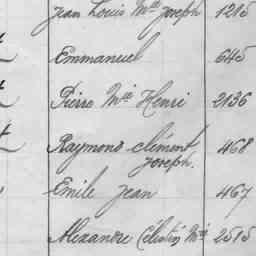 Jean Louis Mie Joseph 1215
Emmanuel 645
Pierre Mie Henri 2136
Raymond Clément 468
Joseph.
Emile Jean 467
Alexandre Célestin Mie 2515